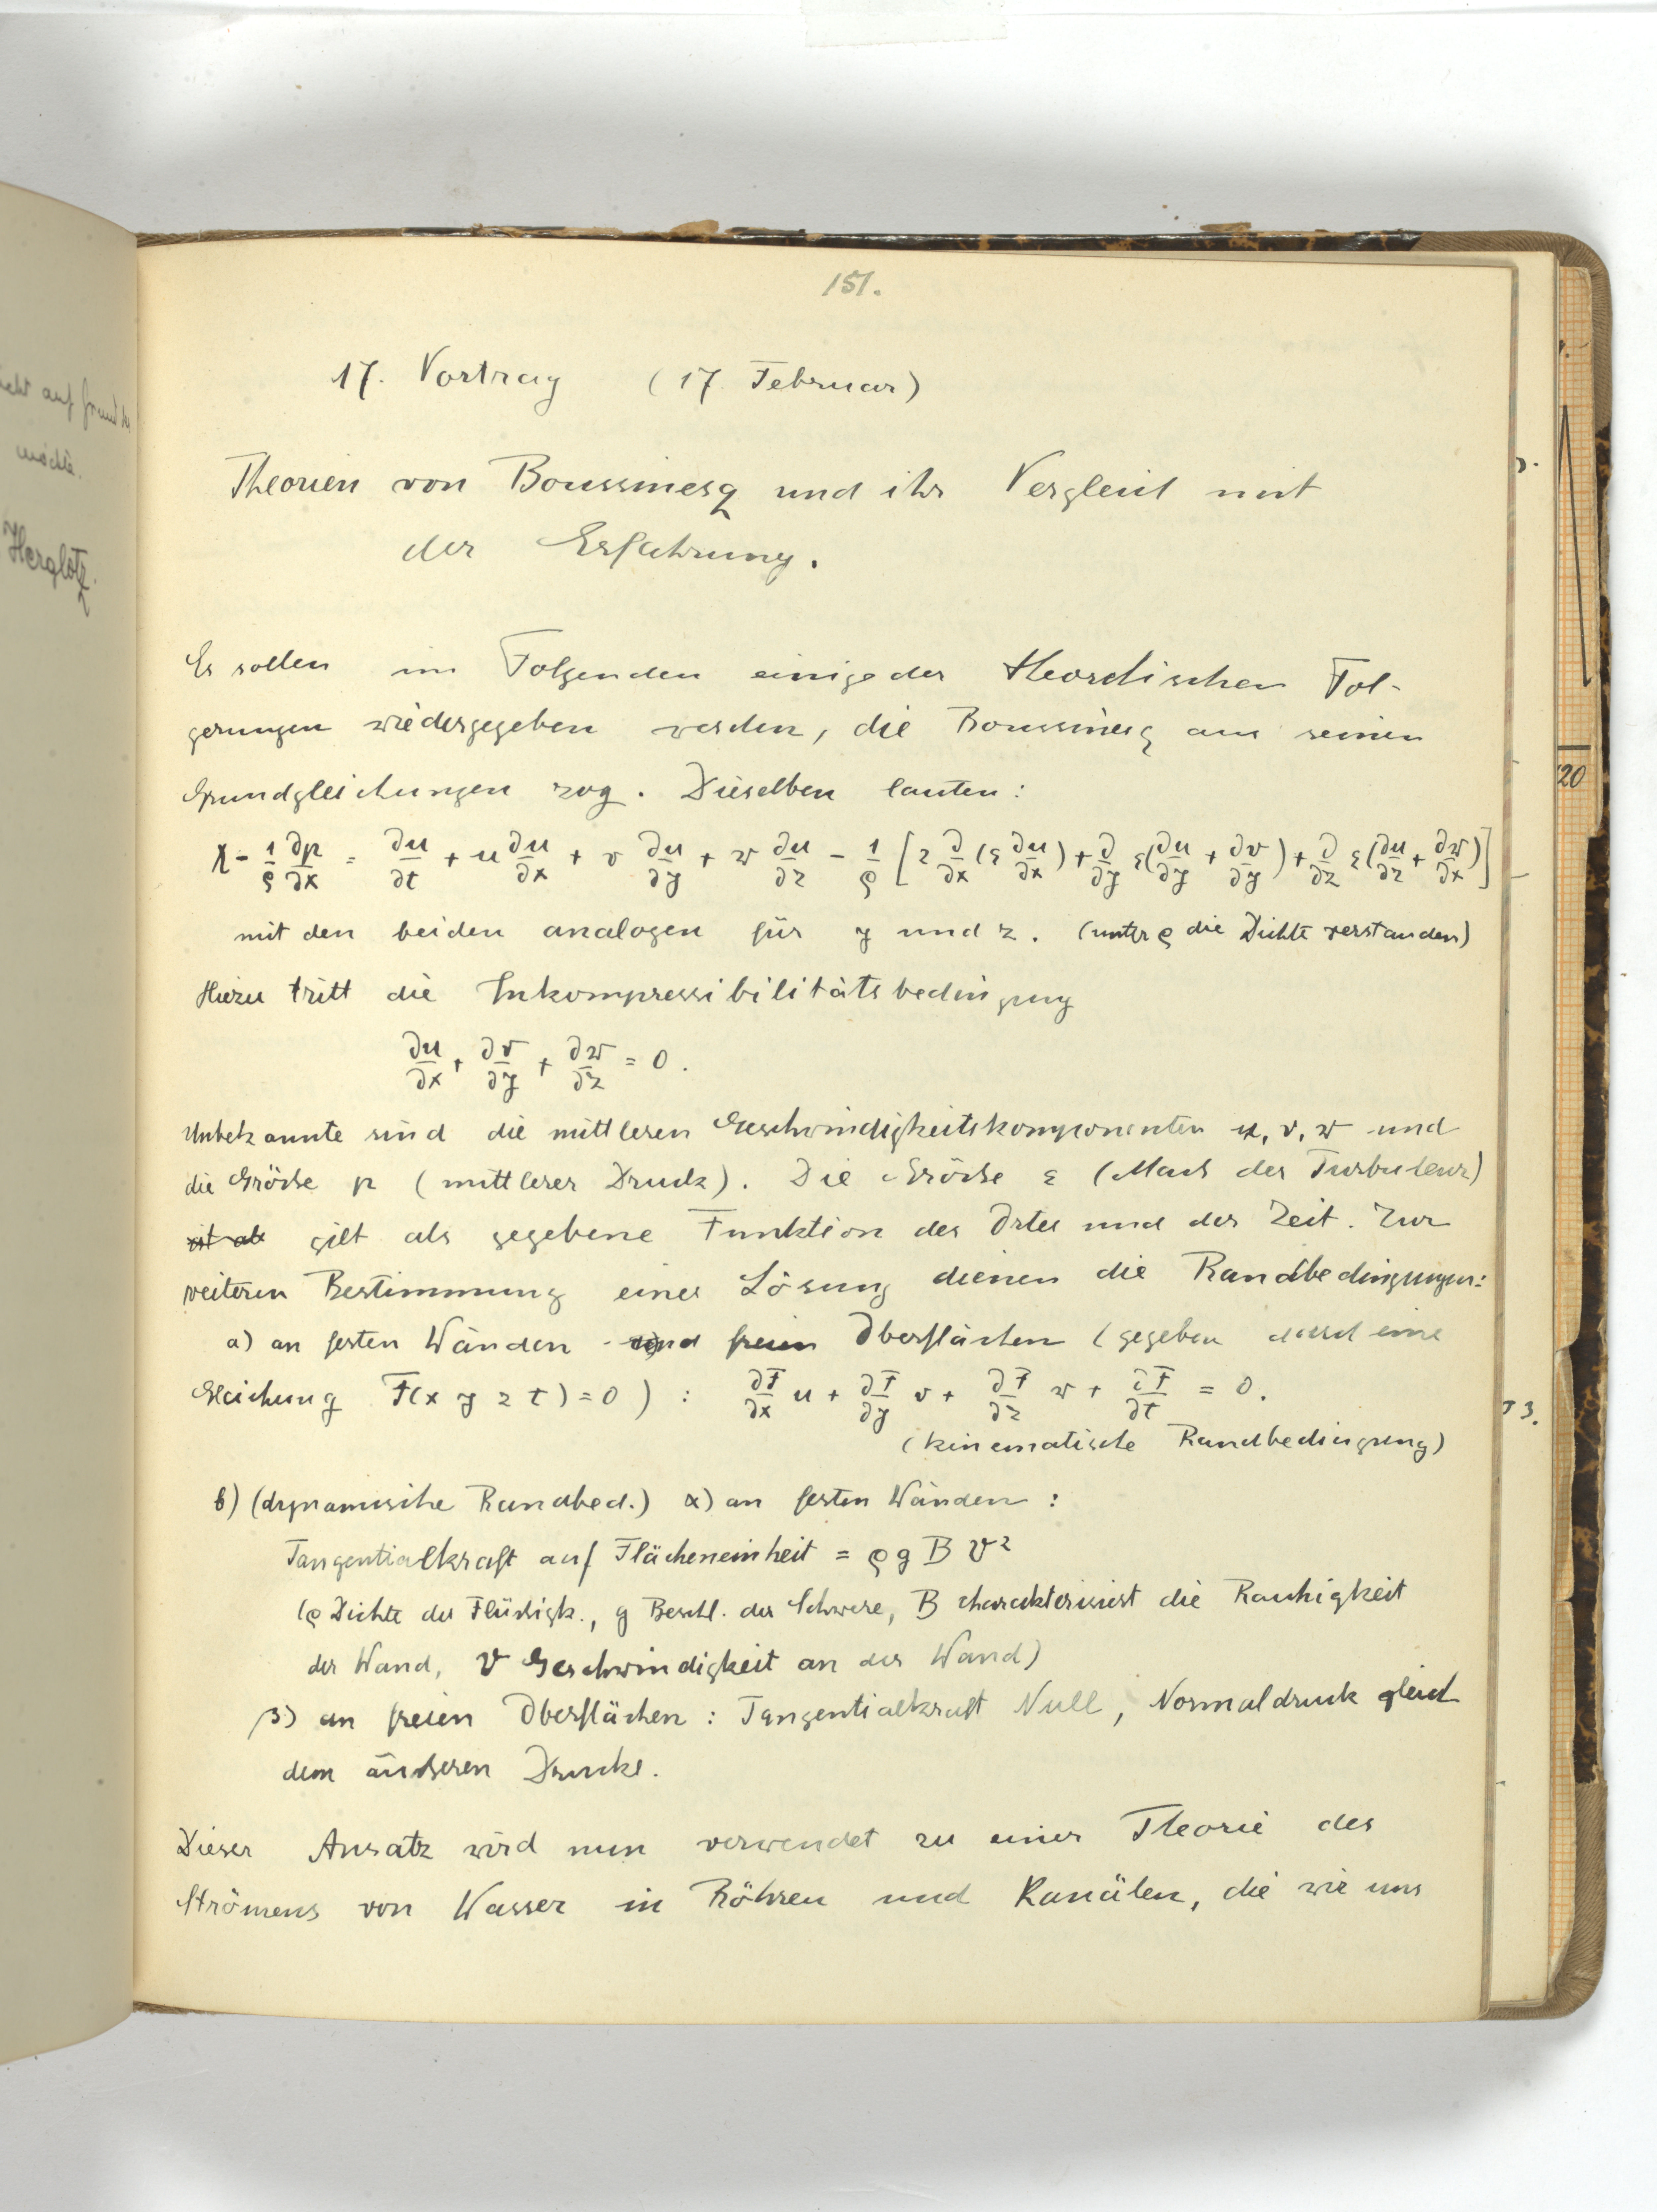 151.
17. Vortrag (17 Februar)
Theorien von Boussinesq und ihr Vergleich mit
der Erfahrung.
Es sollen im Folgenden einige der theoretischen Fol-
gerungen wiedergegeben werden, die Boussinesq aus seinen
Grundgleichungen zog. Dieselben lauten:
X - 1/ρ ∂p/∂x = ∂u/∂t + u ∂u/∂x + v ∂u/∂y + w ∂u/∂z - 1/ρ [2 ∂/∂x (ε ∂u/∂x) + ∂/∂y ε(∂u/∂y + ∂v/∂y) + ∂/∂z ε(∂u/∂z + ∂w/∂x)]
mit den beiden analogen für y und z. (unter ρ die Dichte verstanden)
Hiezu tritt die Inkompressibilitätsbedingung
∂u/∂x + ∂v/∂y + ∂w/∂z = 0.
Unbekannte sind die mittleren Geschwindigkeitskomponenten u, v, w und
die Grösse p (mittlerer Druck). Die Grösse ε (Mass der Turbulenz)
ist als gilt als gegebene Funktion des Ortes und der Zeit. Zur
weiteren Bestimmung einer Lösung dienen die Randbedingungen:
a) an festen Wänden und freien Oberflächen (gegeben durch eine
Gleichung F(x y z t) = 0) : ∂F/∂x u + ∂F/∂y v + ∂F/∂z w + ∂F/∂t = 0.
(kinematische Randbedingung)
b) (dynamische Randbed.) α) an festen Wänden :
Tangentialkraft auf Flächeneinheit = ρ g B V²
(ρ Dichte der Flüssigk., g Beschl. der Schwere, B charakterisiert die Rauhigkeit
der Wand, V Geschwindigkeit an der Wand)
β) an freien Oberflächen : Tangentialkraft Null, Normaldruck gleich
dem äusseren Drucke.
Dieser Ansatz wird nun verwendet zu einer Theorie des
Strömens von Wasser in Röhren und Kanälen, die wir uns
möchte.
Herglotz.
20